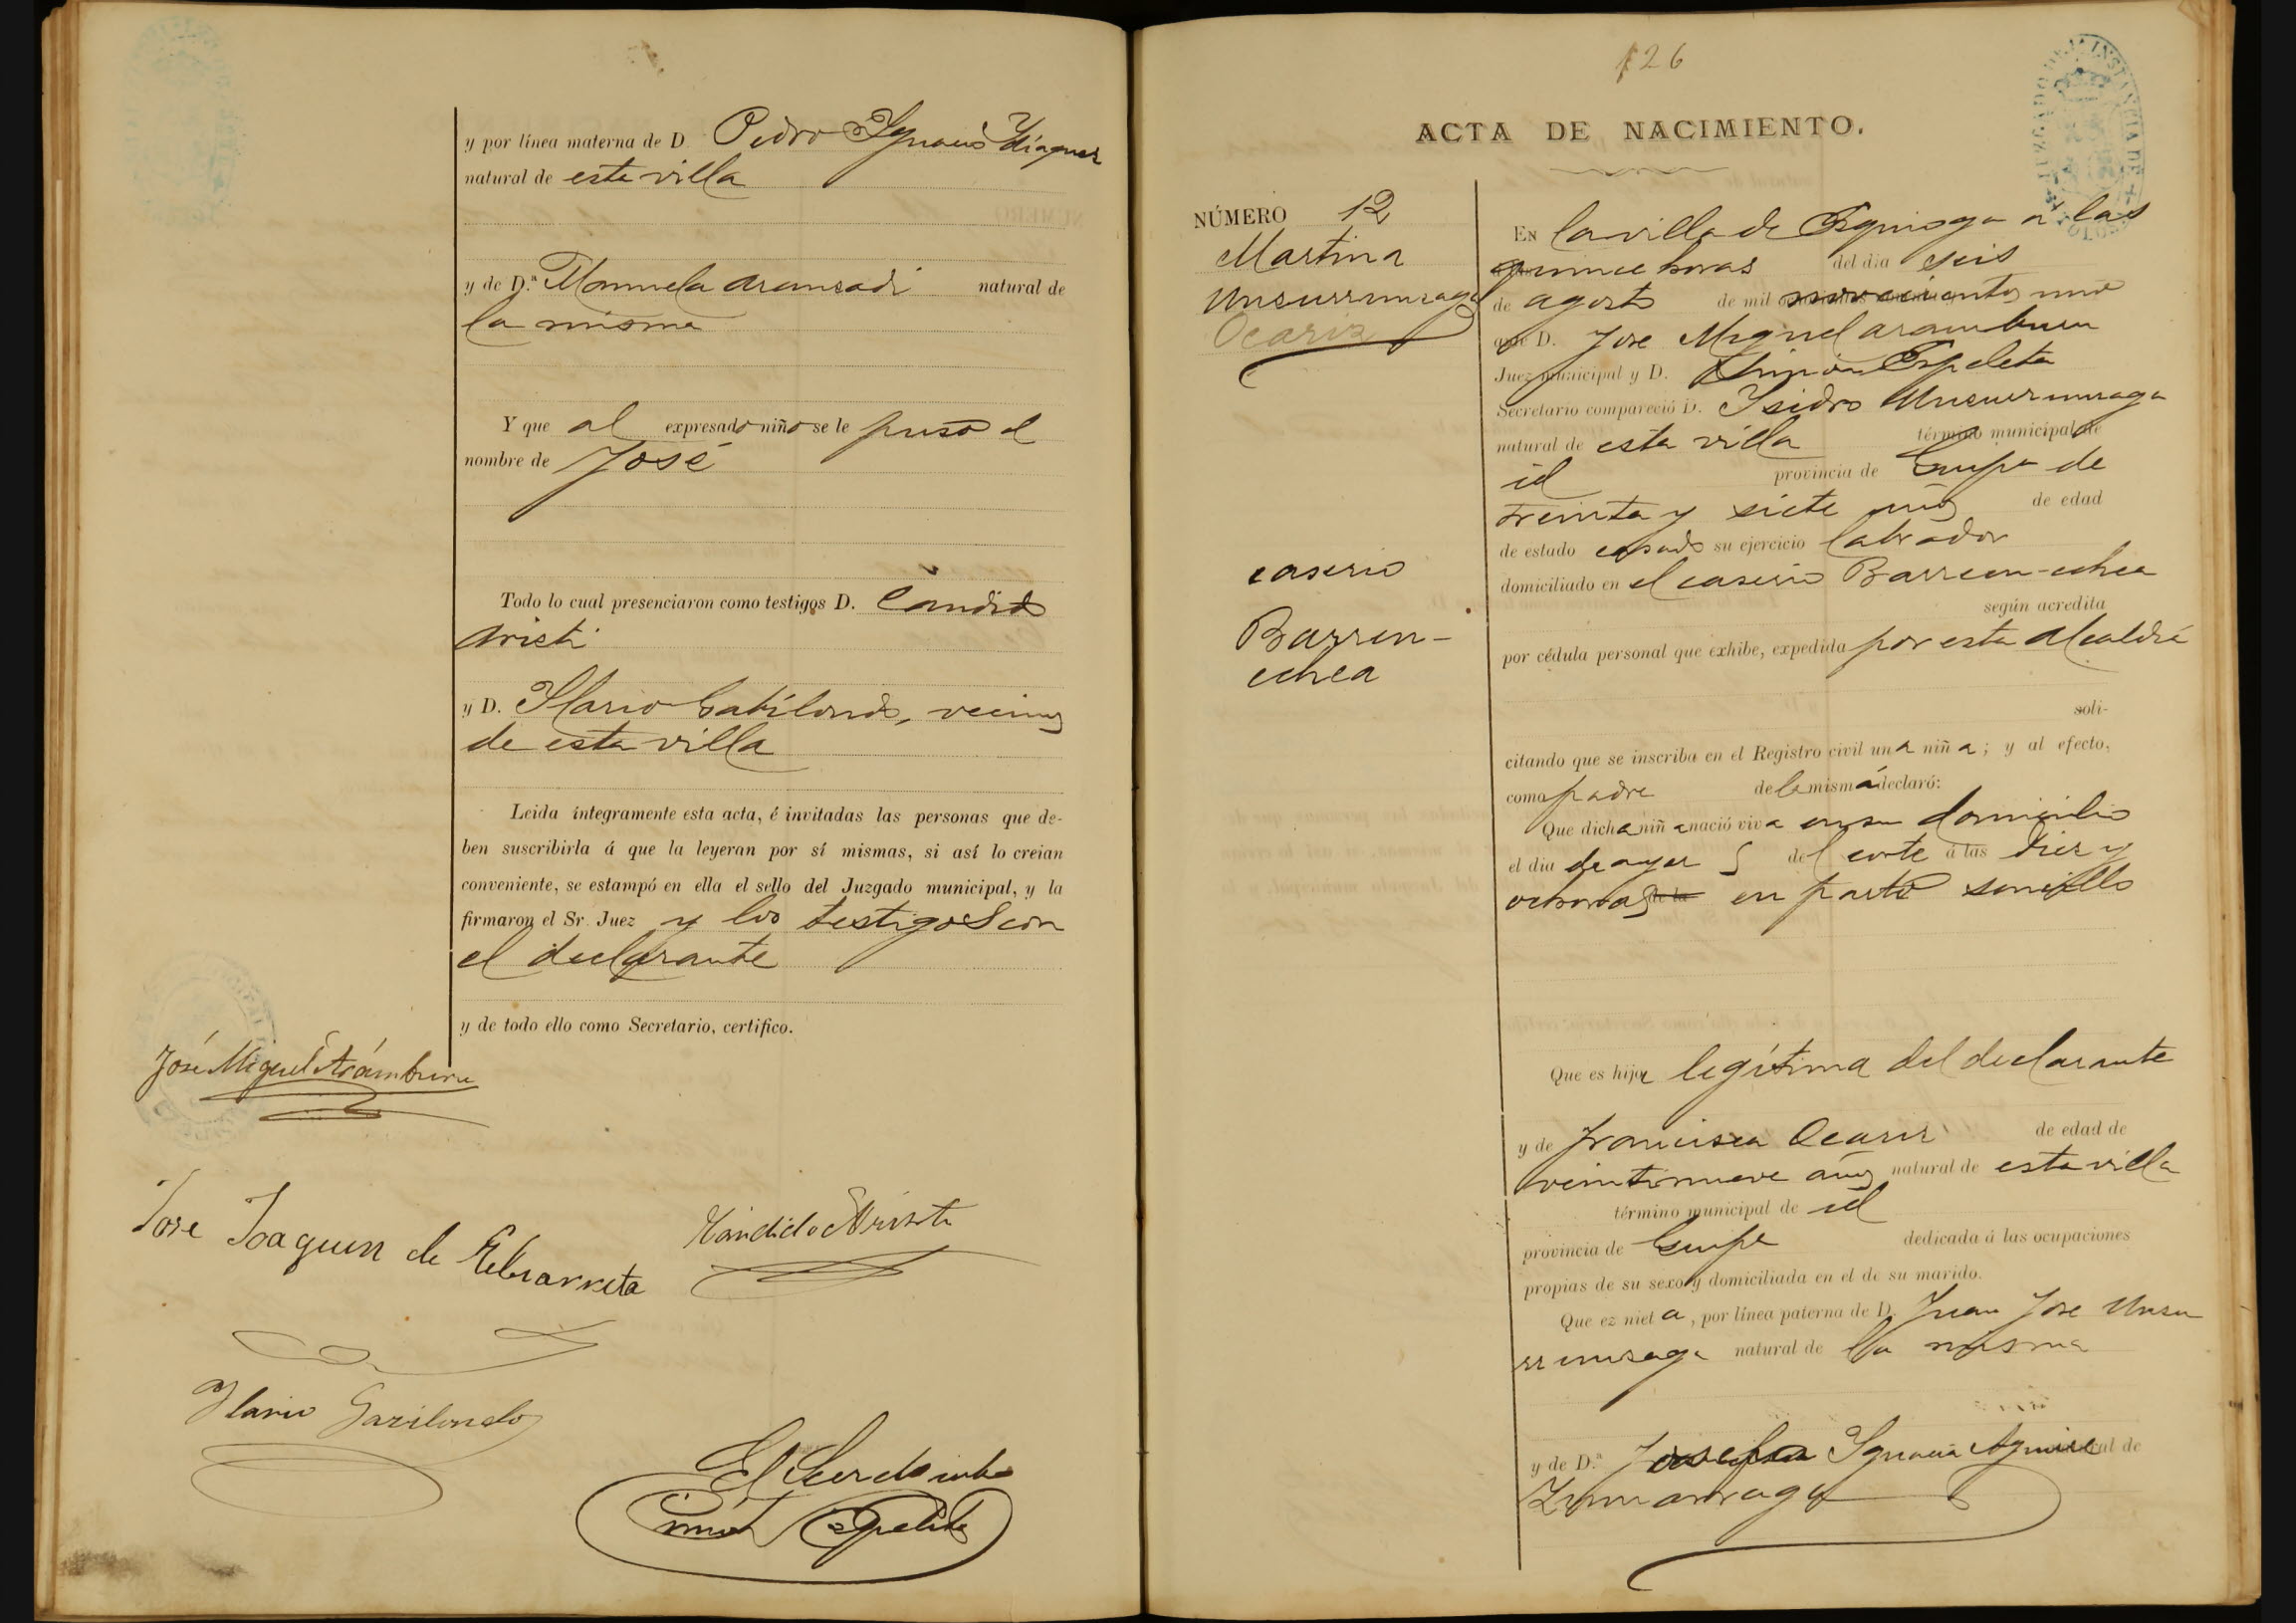 y por línea materna de D. Pedro Ygnacio Ydiaquez
natural de esta villa
y de D.ª Manuela Aranzadi natural de
la misma
Y que al expresado niño se le puso el
nombre de José
Todo lo cual presenciaron como testigos D. Candido
Aristi
y D. Ylario Gabilondo, vecinos
de esta villa
Leida íntegramente esta acta, é invitadas las personas que de-
ben suscribirla á que la leyeran por sí mismas, si así lo creian
conveniente, se estampó en ella el sello del Juzgado municipal, y la
firmaron el Sr. Juez y los testigos con
el declarante
y de todo ello como Secretario, certifico.
José Miguel Arámburu
Jose Joaquin de
Candido Aristi
Ylario Gavilondo
El
Espeleta
126
ACTA DE NACIMIENTO.
JUZGADO DE 1ª INSTANCIA DE TOLOSA
NÚMERO 12
Martina
Unsurrunzaga
Ocariz
caserio
Barren-
echea
En la villa de Ezquioga a las
quince horas del dia seis
de agosto de mil novecientos uno
ante D. Jose Miguel Aramburu
Juez municipal y D. Simón Espeleta
Secretario compareció D. Ysidro Unsurrunzaga
natural de esta villa término municipal de
id provincia de Guipa de
treinta y siete años de edad
de estado casado su ejercicio labrador
domiciliado en el caserio Barren-echea
según acredita
por cédula personal que exhibe, expedida por esta Alcaldía
soli-
citando que se inscriba en el Registro civil una niña; y al efecto,
como padre de la misma declaró:
Que dicha niña nació viva en su domicilio
el dia de ayer 5 del corte á las diez y
ocho horas de la en parto sencillo
Que es hija legítima del declarante
y de Francisca Ocariz de edad de
veintinueve años natural de esta villa
término municipal de id
provincia de Guipa dedicada á las ocupaciones
propias de su sexo y domiciliada en el de su marido.
Que ez nieta, por línea paterna de D. Juan Jose Unsu
rrunzaga natural de la misma
y de D.ª Josefa Ygnacia Aguirre natural de
Zumarraga